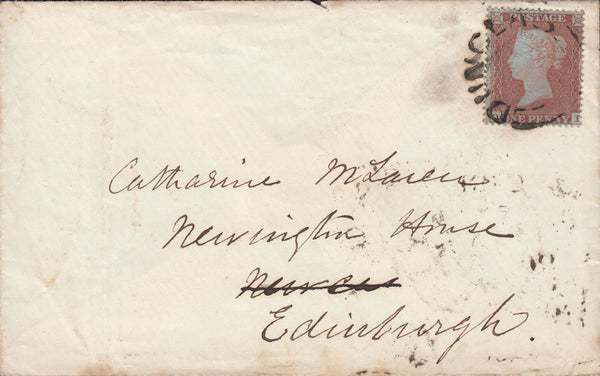 POSTAGE
ONE PENNY
DUNGLAS
Catharine McLaren
Newington House
Edinburgh.